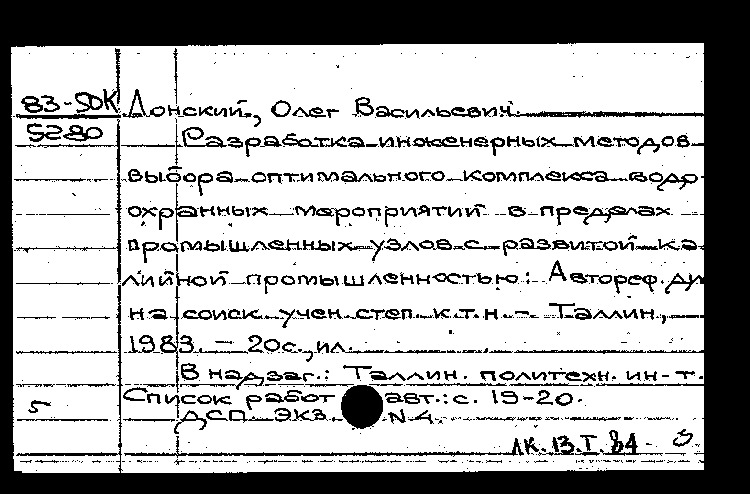 83-5ДК Донский, Олег Васильевич.
5280
Разработка инженерных методов
выбора оптимального комплекса водо-
охранных мероприятий в пределах
промышленных узлов с развитой ка-
лийной промышленностью: Автореф. ди
на соиск. учен. степ. к.т.н. - Таллин,
1983. - 20с., ил.
В надзаг.: Таллин. политехн. ин-т.
5 Список работ авт.: с. 19-20.
ДСП. Экз. N 4.
ЛК. 13.I.84